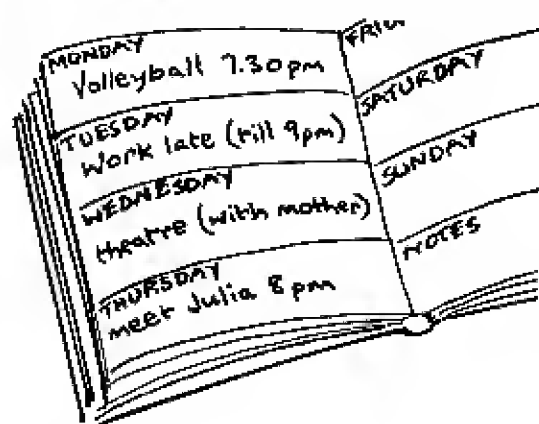 MONDAY
Volleyball 7.30pm
TUESDAY
Work late (till 9pm)
WEDNESDAY
theatre (with mother)
THURSDAY
meet Julia 8pm
SATURDAY
SUNDAY
NOTES